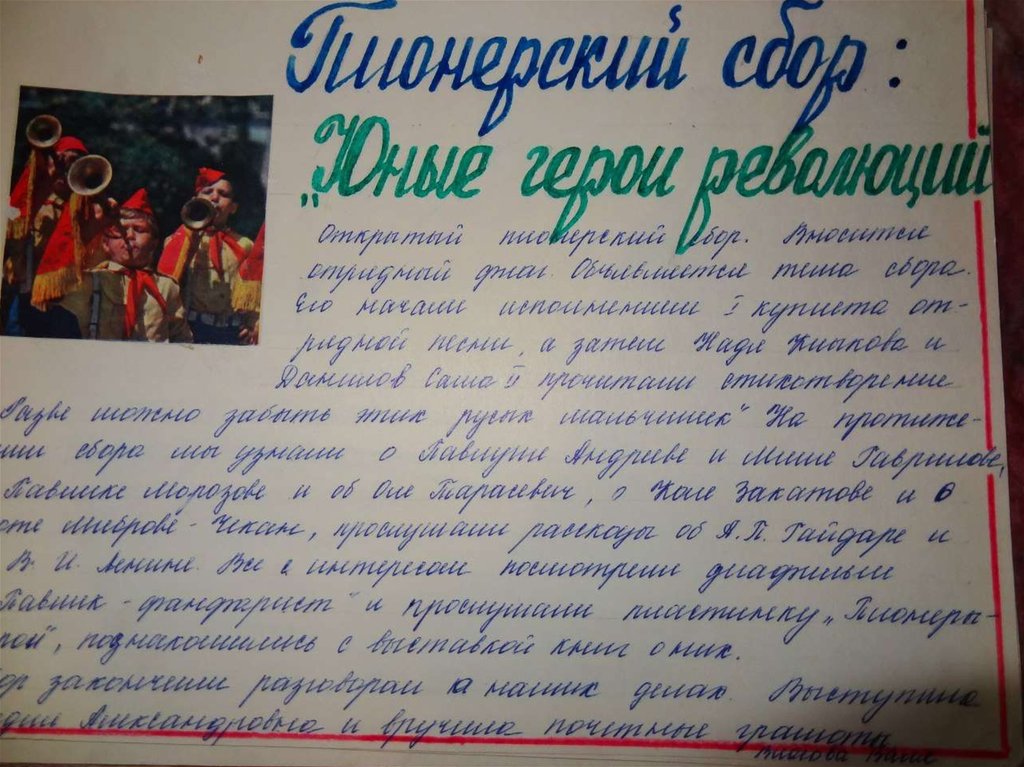 Пионерский сбор:
"Юные герои революций
Открытый пионерский сбор. Вносится
отрядный флаг. Объявляется тема сбора.
Его начали исполнением I куплета от-
рядной песни, а затем Надя Клыкова и
Данилов Саша II прочитали стихотворение
Разве можно забыть этих русых мальчишек" На протяже-
нии сбора мы узнали о Павлуше Андрееве и Мише Гаврилове,
Павлике Морозове и об Оле Тарасевич, о Коле Закатове и о
Чекан, прослушали рассказы об А.П. Гайдаре и
В. И. Ленине. Все с интересом посмотрели диафильм
Павлик - фанфарист" и прослушали пластинку "Пионеры-
рои", познакомились с выставкой книг о них.
ор закончили разговором о наших делах. Выступила
дия Александровна и вручила почётные грамоты